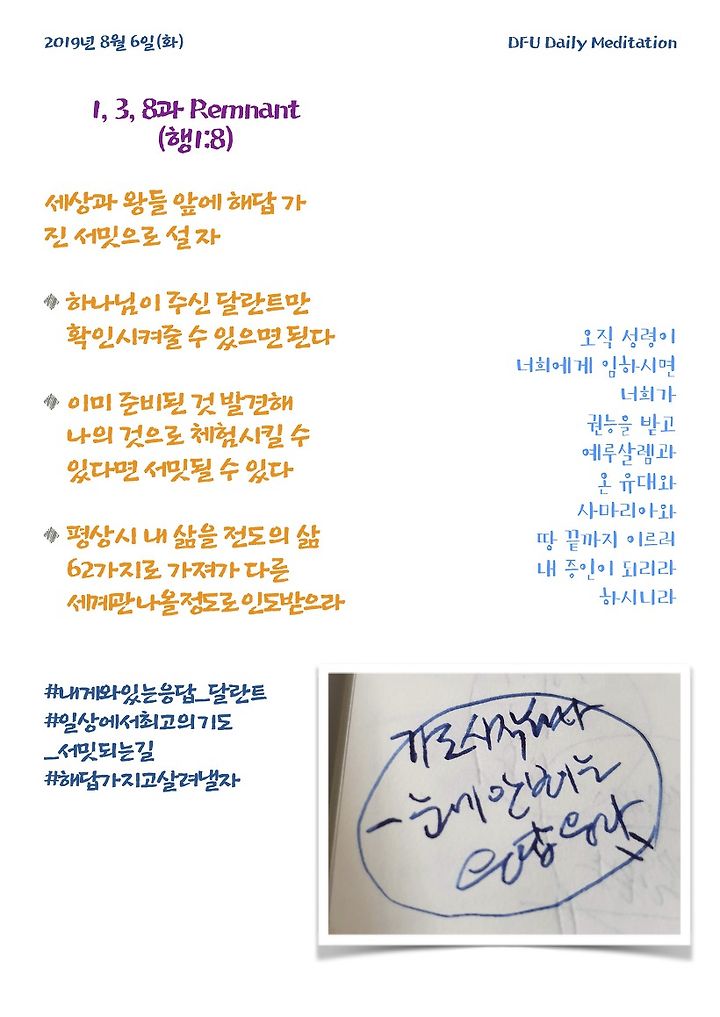 2019년 8월 6일(화)
DFU Daily Meditation
1, 3, 8과 Remnant
(행1:8)
세상과 왕들 앞에 해답 가
진 서밋으로 설 자
하나님이 주신 달란트만
확인시켜줄 수 있으면 된다
이미 준비된 것 발견해
나의 것으로 체험시킬 수
있다면 서밋될 수 있다
평상시 내 삶을 전도의 삶
62가지로 가져가 다른
세계관 나올정도로 인도받으라
오직 성령이
너희에게 임하시면
너희가
권능을 받고
예루살렘과
온 유대와
사마리아와
땅 끝까지 이르러
내 증인이 되리라
하시니라
#내게와있는응답_달란트
#일상에서최고의기도
_서밋되는길
#해답가지고살려낼자
- 눈에 안 보이는